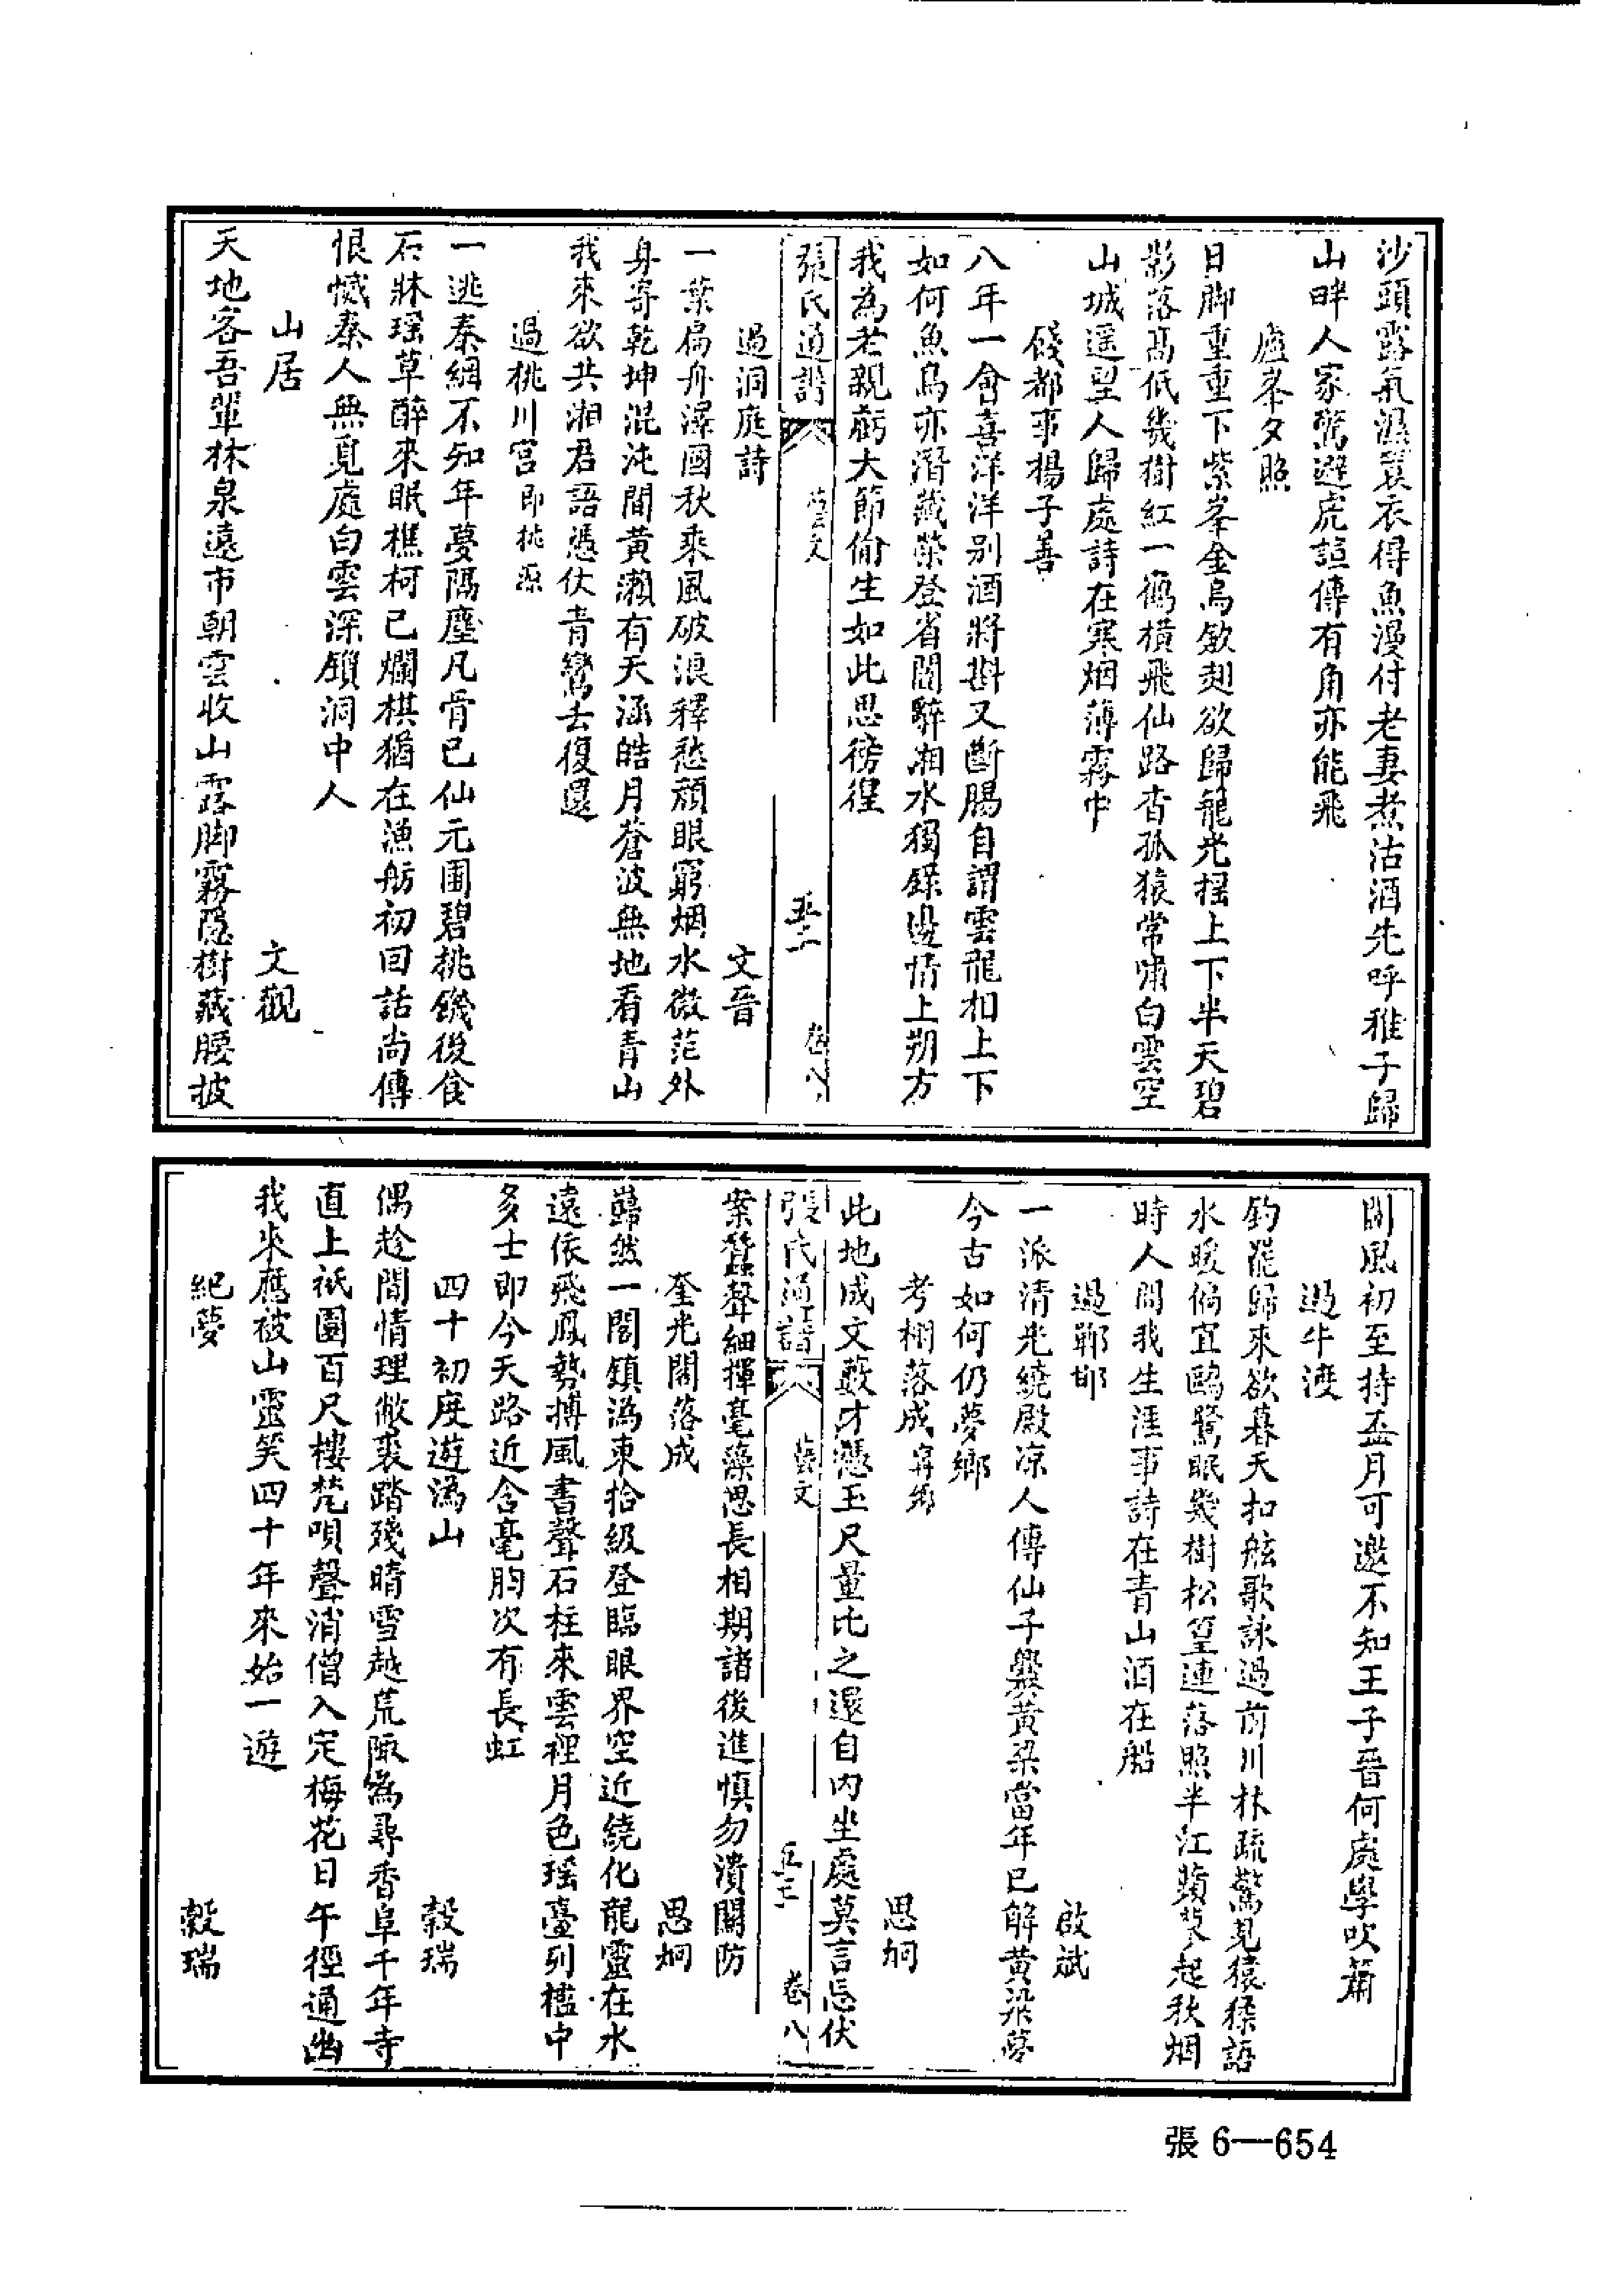 沙頭露氣濕蓑衣得魚漫付老妻煮沽酒先呼稚子歸
山畔人家驚避虎詎傳有角亦能飛
廬峯夕照
日脚重重下紫峯金烏斂翅欲歸籠光揺上下半天碧
影落髙低幾樹紅一鶴橫飛仙路杳孤猿常嘯白雲空
山城遥望人歸處詩在寒烟薄霧中
餞都事楊子善
八年一會喜洋洋别酒將斟又斷腸自謂雲龍相上下
如何魚鳥亦潛藏榮登省閣辭湘水獨鍱邉情上朔方
我為老親虧大節偷生如此思徬徨
張氏通譜 藝文 五二 卷八
過洞庭詩 文晉
一葉扁舟澤國秋乘風破浪釋愁顏眼窮烟水微茫外
身寄乾坤混沌間黃瀨有天涵皓月蒼波無地看青山
我來欲共湘君語憑仗青鸞去復還
過桃川宮即桃源
一逃秦網不知年夢隔塵凡骨已仙元圃碧桃饑後食
石牀瑶草醉來眠樵柯已爛棋猶在漁舫初回話尚傳
恨憾秦人無覓處白雲深鎖洞中人
山居 文觀
天地客吾輩林泉遠市朝雲收山露脚霧隱樹藏腰披
閒風初至持盃月可邀不知王子晉何處學吹簫
過牛渡
釣罷歸來欲暮天扣舷歌詠過前川林疏驚見猿猱語
水暖偏宜鷗鷺眠幾樹松篁連落照半江蘋蓼起秋烟
時人問我生涯事詩在青山酒在船
過鄲邯 啟斌
一派清光繞殿凉人傳仙子爨黃粱當年已解黃粱夢
今古如何仍夢鄉
考棚落成寧鄉 思炯
此地成文藪才憑玉尺量比之還自内坐處莫言忘伏
張氏通譜 藝文 五三 卷八
案蠶聲細揮毫藻思長相期諸後進慎勿潰關防
奎光閣落成 思炯
巋然一閣鎮溈東拾級登臨眼界空近繞化龍靈在水
遠依飛鳳勢搏風書聲石柱來雲裡月色瑶臺列檻中
多士即今天路近含毫胸次有長虹
四十初度遊溈山 穀瑞
偶趁閒情理敝裘踏殘晴雪越荒陬為尋香阜千年寺
直上祇園百尺樓梵唄聲消僧入定梅花日午徑通幽
我來應被山靈笑四十年來始一遊
紀夢 穀瑞
張6—654